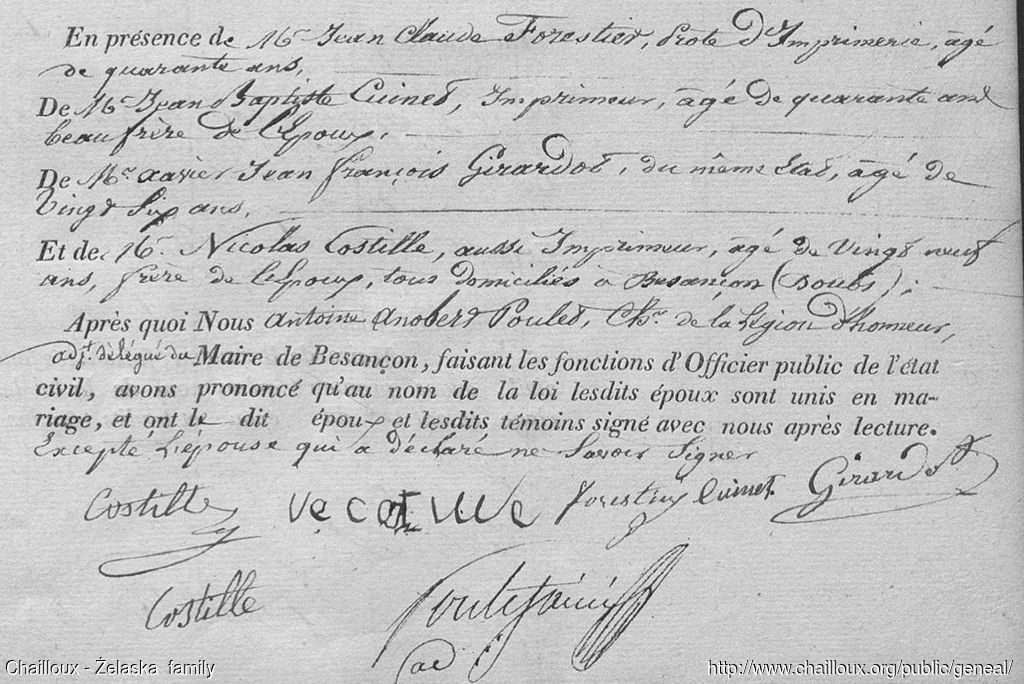 En présence de Mr Jean Claude Forestier, Prote d'Imprimerie, âgé
de quarante ans,
De Mr Jean Baptiste Cuinet, Imprimeur, âgé de quarante ans
beau frère de l'Epoux,
De Mr Xavier Jean françois Girardot, du même Etat, âgé de
Vingt Six ans,
Et de Mr Nicolas Costille, aussi Imprimeur, âgé de Vingt neuf
ans, frère de l'Epoux, tous domiciliés à Besançon (Doubs);
Après quoi Nous Antoine Anobert Poulet, Chr de la Légion d'honneur,
adjt délégué du Maire de Besançon, faisant les fonctions d'Officier public de l'état
civil, avons prononcé qu'au nom de la loi lesdits époux sont unis en ma-
riage, et ont le dit époux et lesdits témoins signé avec nous après lecture.
Excepté l'épouse qui a déclaré ne Savoir Signer
Costille Ve Forestier Cuinet Girardot
Costille
Chailloux - Želaska family http://www.chailloux.org/public/geneal/